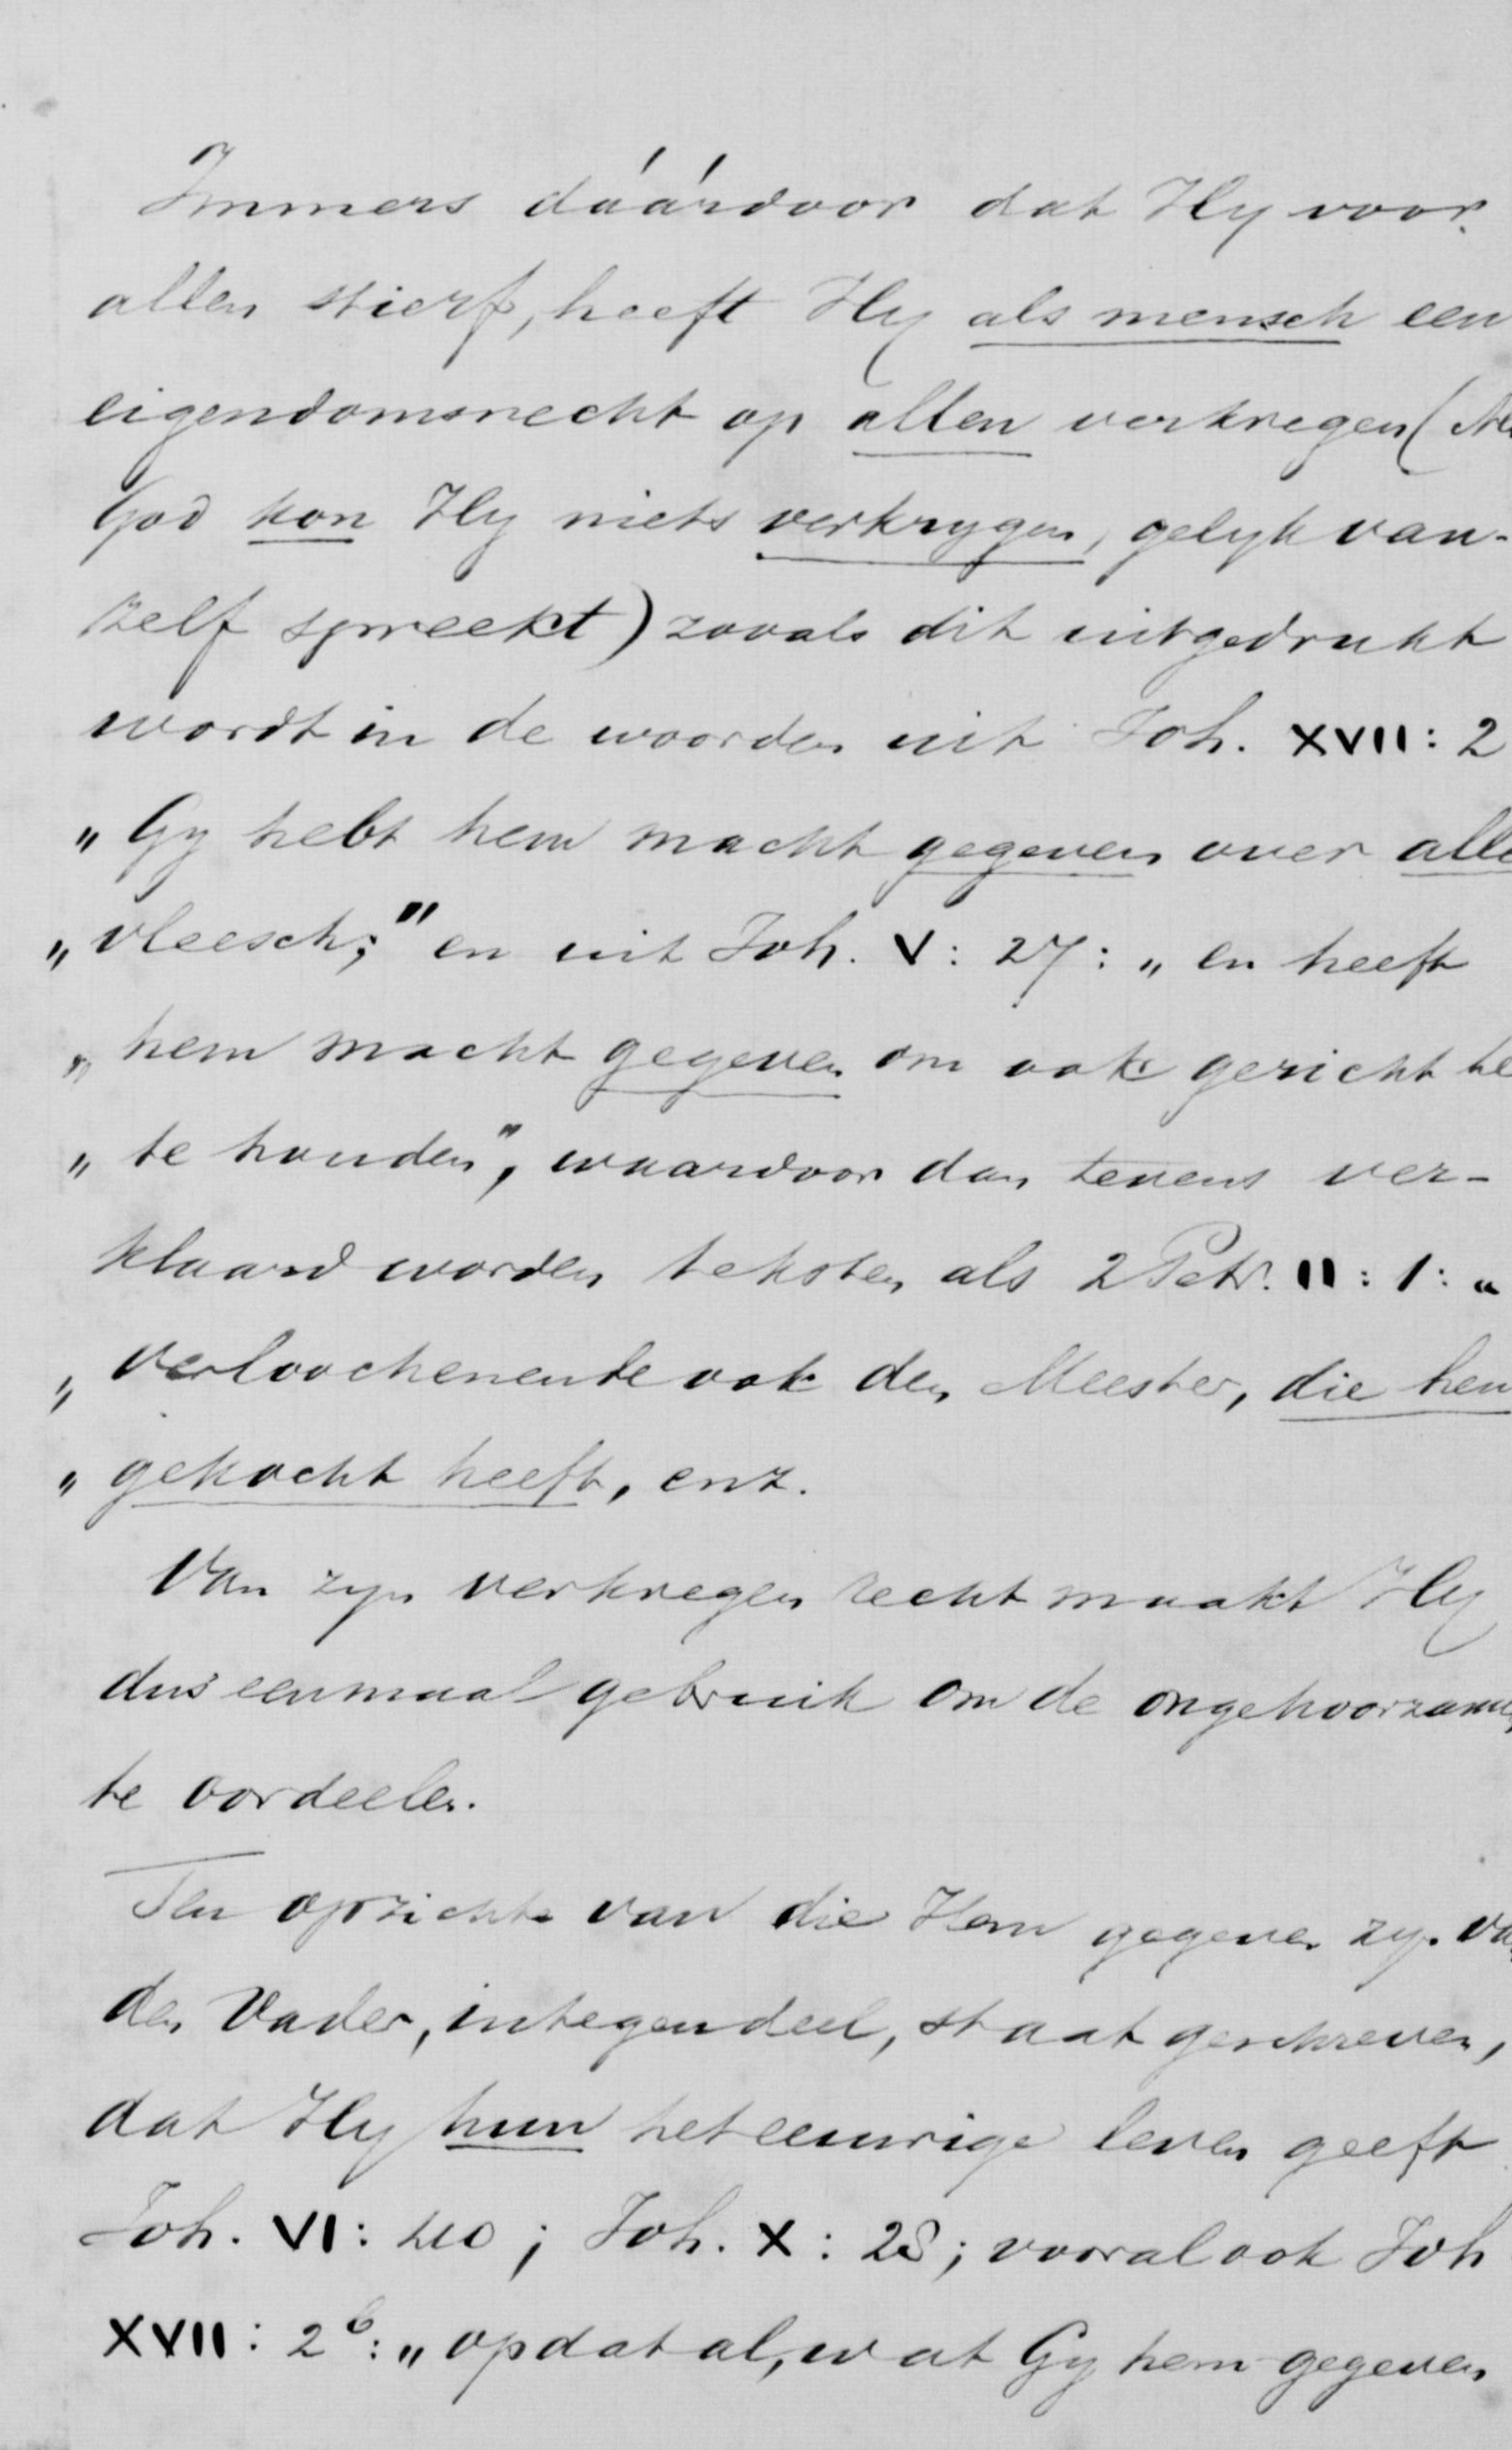 Immers dáárdoor dat Hy voor
allen stierf, heeft Hy als mensch een
eigendomsrecht op allen verkregen (Als
God kon Hy niets verkrygen, gelyk van-
zelf spreekt) zooals dit uitgedrukt
wordt in de woorden uit Joh. XVII: 2
„Gy hebt hem macht gegeven over alle
„vleesch;" en uit Joh. V: 27: „en heeft
„hem macht gegeven om ook gericht te
„te houden", waardoor dan tevens ver-
klaard worden teksten als 2 Petr. II: 1: „
„verloochenende ook den Meester, die hen
„gekocht heeft, enz.
Van zyn verkregen recht maakt Hy
dus eenmaal gebruik om de ongehoorzamen
te oordeelen.
Ten opzichte van die Hem gegeven zyn van
den Vader, integendeel, staat geschreven,
dat Hy hun het eeuwige leven geeft
Joh. VI: 40; Joh. X: 28; vooral ook Joh
XVII: 2b: „opdat al, wat Gy hem gegeven